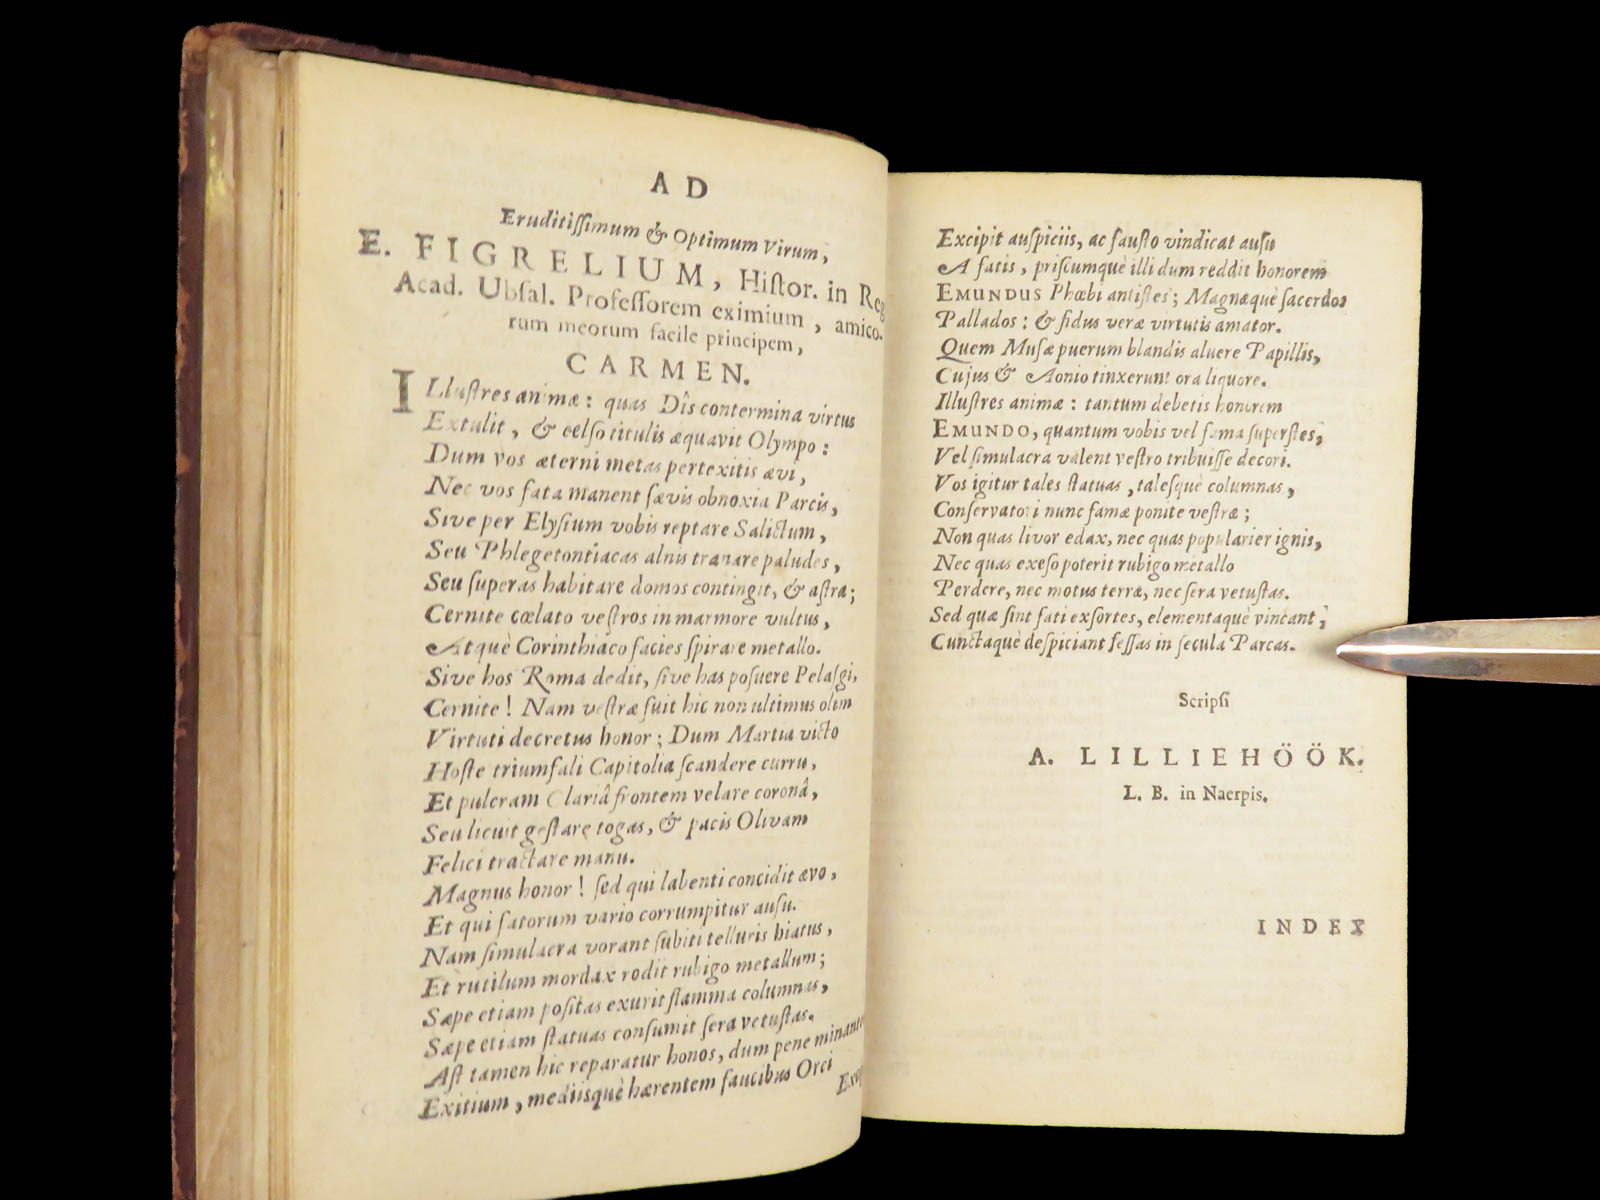 AD
Eruditiſſimum & Optimum Virum,
E. FIGRELIUM, Hiſtor. in Reg
Acad. Ubſal. Profeſſorem eximium, amico-
rum meorum facile principem,
CARMEN.
ILluſtres animæ: quas Dîs contermina virtus
Extulit, & celſo titulis æquavit Olympo:
Dum vos æterni metas pertexitis ævi,
Nec vos fata manent ſævis obnoxia Parcis,
Sive per Elyſium vobis reptare Salictum,
Seu Phlegetontiacas alnis tranare paludes,
Seu ſuperas habitare domos contingit, & aſtra;
Cernite cœlato veſtros in marmore vultus,
Atquè Corinthiaco facies ſpirare metallo.
Sive hos Roma dedit, ſive has poſuere Pelaſgi,
Cernite! Nam veſtræ fuit hic non ultimus olim
Virtuti decretus honor; Dum Martia victo
Hoſte triumfali Capitolia ſcandere curru,
Et pulcram Clariâ frontem velare coronâ,
Seu licuit geſtare togas, & pacis Olivam
Felici tractare manu.
Magnus honor! ſed qui labenti concidit ævo,
Et qui fatorum vario corrumpitur auſu.
Nam ſimulacra vorant ſubiti telluris hiatus,
Et rutilum mordax rodit rubigo metallum;
Sæpe etiam poſitas exurit flamma columnas,
Sæpe etiam ſtatuas conſumit ſera vetuſtas.
Aſt tamen hic reparatur honos, dum pene minante
Exitium, mediisquè hærentem faucibus Orci
Exc
Excipit auſpiciis, ac fauſto vindicat auſu
A fatis, priſcumquè illi dum reddit honorem
EMUNDUS Phœbi antiſtes; Magnæquè ſacerdos
Pallados: & fidus veræ virtutis amator.
Quem Muſæ puerum blandis aluere Papillis,
Cujus & Aonio tinxerunt ora liquore.
Illuſtres animæ: tantum debetis honorem
EMUNDO, quantum vobis vel fama ſuperſtes,
Vel ſimulacra valent veſtro tribuiſſe decori.
Vos igitur tales ſtatuas, talesquè columnas,
Conſervatori nunc famæ ponite veſtræ;
Non quas livor edax, nec quas popularier ignis,
Nec quas exeſo poterit rubigo metallo
Perdere, nec motus terræ, nec ſera vetuſtas.
Sed quæ ſint fati exſortes, elementaquè vincant,
Cunctaquè deſpiciant feſſas in ſecula Parcas.
Scripſi
A. LILLIEHÖÖK.
L. B. in Naerpis.
INDEX